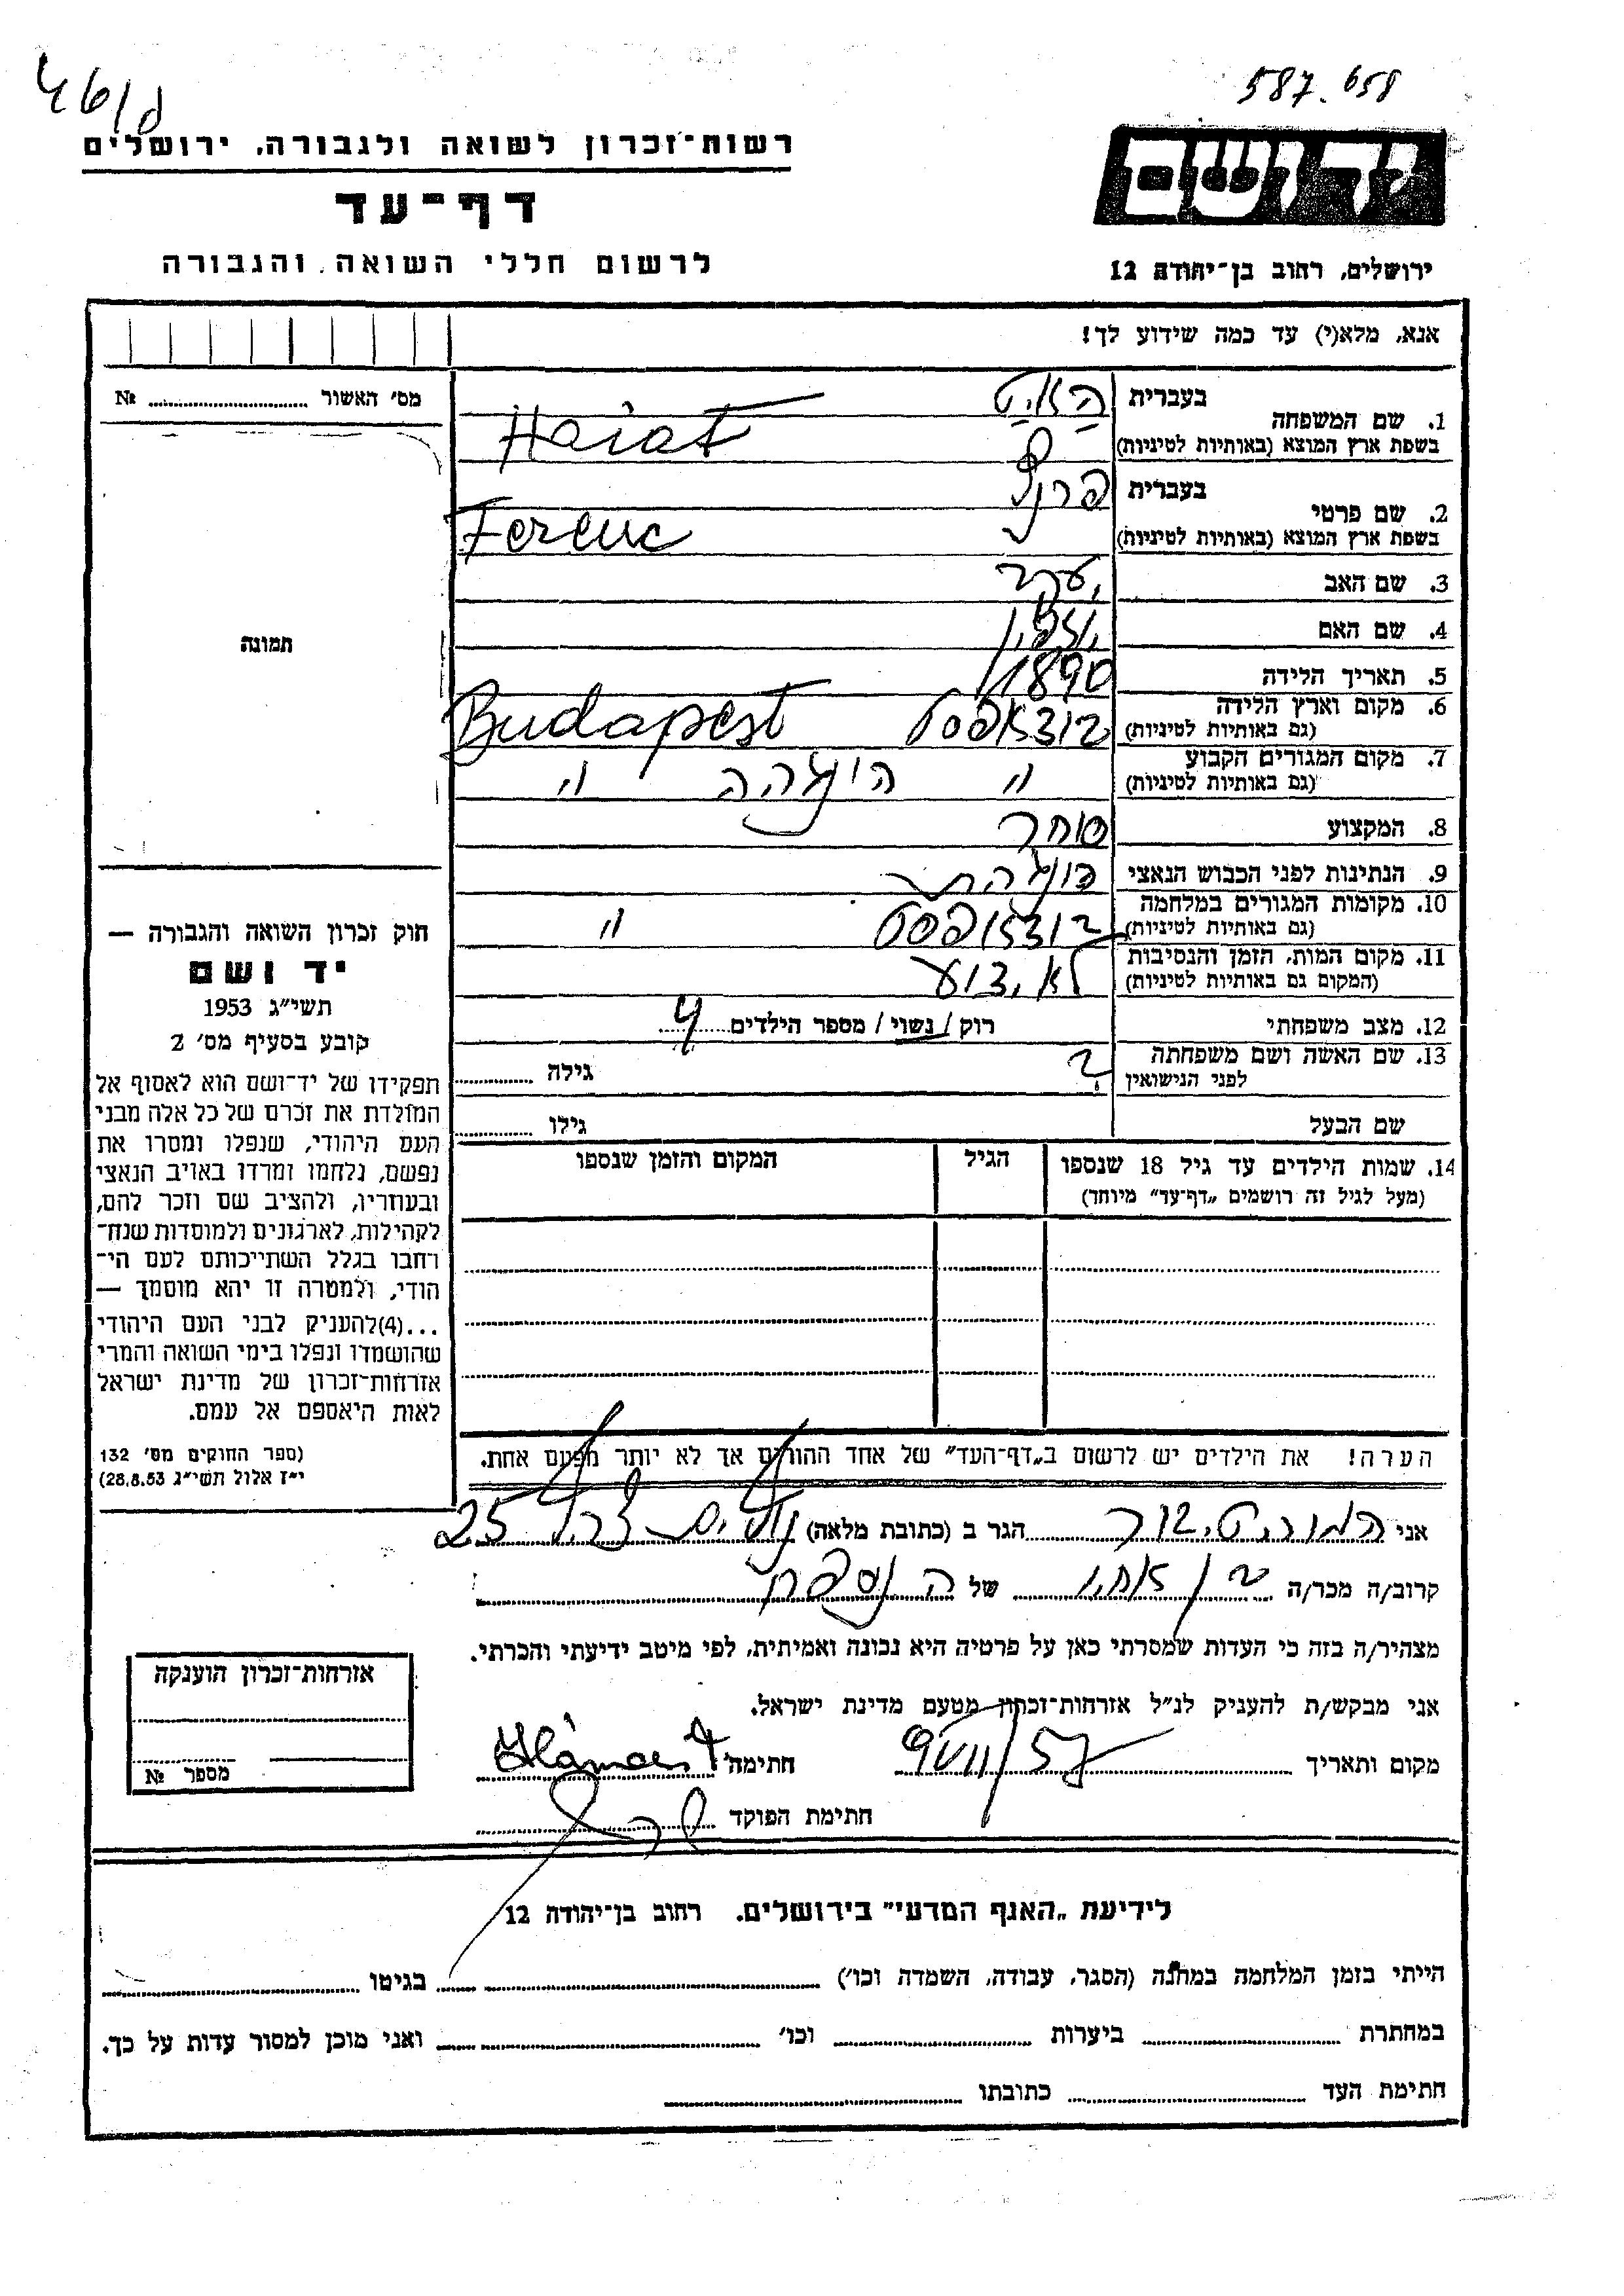 587.658
רשות-זכרון לשואה ולגבורה, ירושלים
יד ושם
דף-עד
לרשום חללי השואה והגבורה
ירושלים, רחוב בן-יהודה 12
אנא, מלא(י) עד כמה שידוע לך!
מס׳ האשור № 
1. שם המשפחה בעברית האיט
בשפת ארץ המוצא (באותיות לטיניות) Haiat
2. שם פרטי בעברית פרנץ
בשפת ארץ המוצא (באותיות לטיניות) Ferenc
3. שם האב
4. שם האם
5. תאריך הלידה 1890
6. מקום וארץ הלידה (גם באותיות לטיניות) בודאפסט Budapest
7. מקום המגורים הקבוע (גם באותיות לטיניות) " הונגריה "
8. המקצוע סוחר
9. הנתינות לפני הכבוש הנאצי הונגרית
10. מקומות המגורים במלחמה (גם באותיות לטיניות) בודאפסט "
11. מקום המות, הזמן והנסיבות (המקום גם באותיות לטיניות) לא ידוע
12. מצב משפחתי רוק/נשוי/ מספר הילדים 4
13. שם האשה ושם משפחתה לפני הנישואין ? גילה
שם הבעל גילו
14. שמות הילדים עד גיל 18 שנספו הגיל המקום והזמן שנספו
(מעל לגיל זה רושמים „דף-עד" מיוחד)
תמונה
חוק זכרון השואה והגבורה —
יד ושם
תשי״ג 1953
קובע בסעיף מס׳ 2
תפקידו של יד-ושם הוא לאסוף אל
המולדת את זכרם של כל אלה מבני
העם היהודי, שנפלו ומסרו את
נפשם, נלחמו ומרדו באויב הנאצי
ובעוזריו, ולהציב שם וזכר להם,
לקהילות, לארגונים ולמוסדות שנח-
רחבו בגלל השתייכותם לעם הי-
הודי, ולמטרה זו יהא מוסמך —
...(4)להעניק לבני העם היהודי
שהושמדו ונפלו בימי השואה והמרי
אזרחות-זכרון של מדינת ישראל
לאות היאספם אל עמם.
(ספר החוקים מס׳ 132
י״ז אלול תשי״ג 28.8.53)
הערה! את הילדים יש לרשום ב„דף-העד" של אחד ההורים אך לא יותר מפעם אחת.
אני הגר ב (כתובת מלאה) 25
קרוב/ה מכר/ה בן אחיו של הנספה
מצהיר/ה בזה כי העדות שמסרתי כאן על פרטיה היא נכונה ואמיתית, לפי מיטב ידיעתי והכרתי.
אני מבקש/ת להעניק לנ״ל אזרחות-זכרון מטעם מדינת ישראל.
מקום ותאריך חתימה
חתימת הפוקד
אזרחות-זכרון הוענקה
מספר №
לידיעת „האגף המדעי" בירושלים. רחוב בן-יהודה 12
הייתי בזמן המלחמה במחנה (הסגר, עבודה, השמדה וכו׳) בגיטו
במחתרת ביערות וכו׳ ואני מוכן למסור עדות על כך.
חתימת העד כתובתו